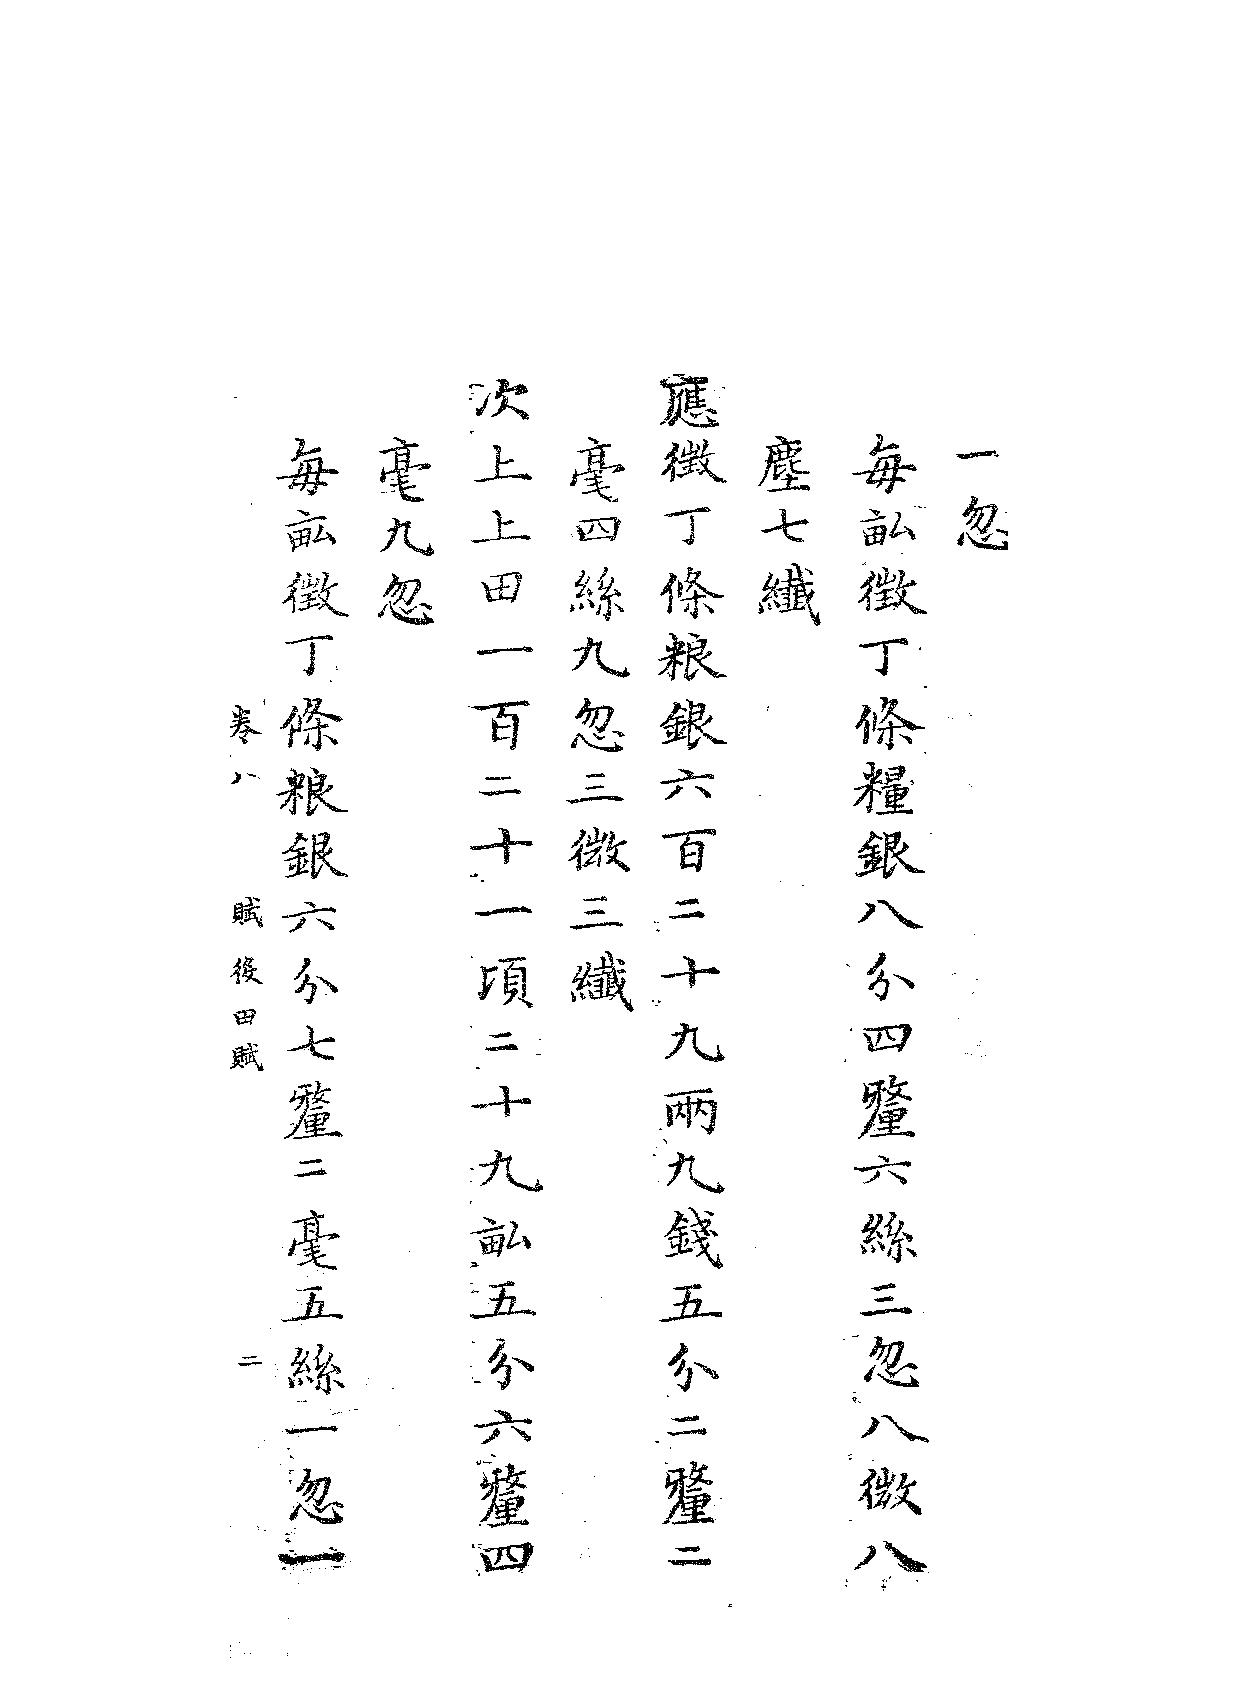 一忽
每畆徵丁條糧銀八分四釐六絲三忽八微八
塵七纖
應徵丁條粮銀六百二十九兩九錢五分二釐二
毫四絲九忽三微三纖
次上上田一百二十一頃二十九畆五分六釐四
毫九忽
每畆徵丁條粮銀六分七釐二毫五絲一忽一
卷八 賦役田賦 二